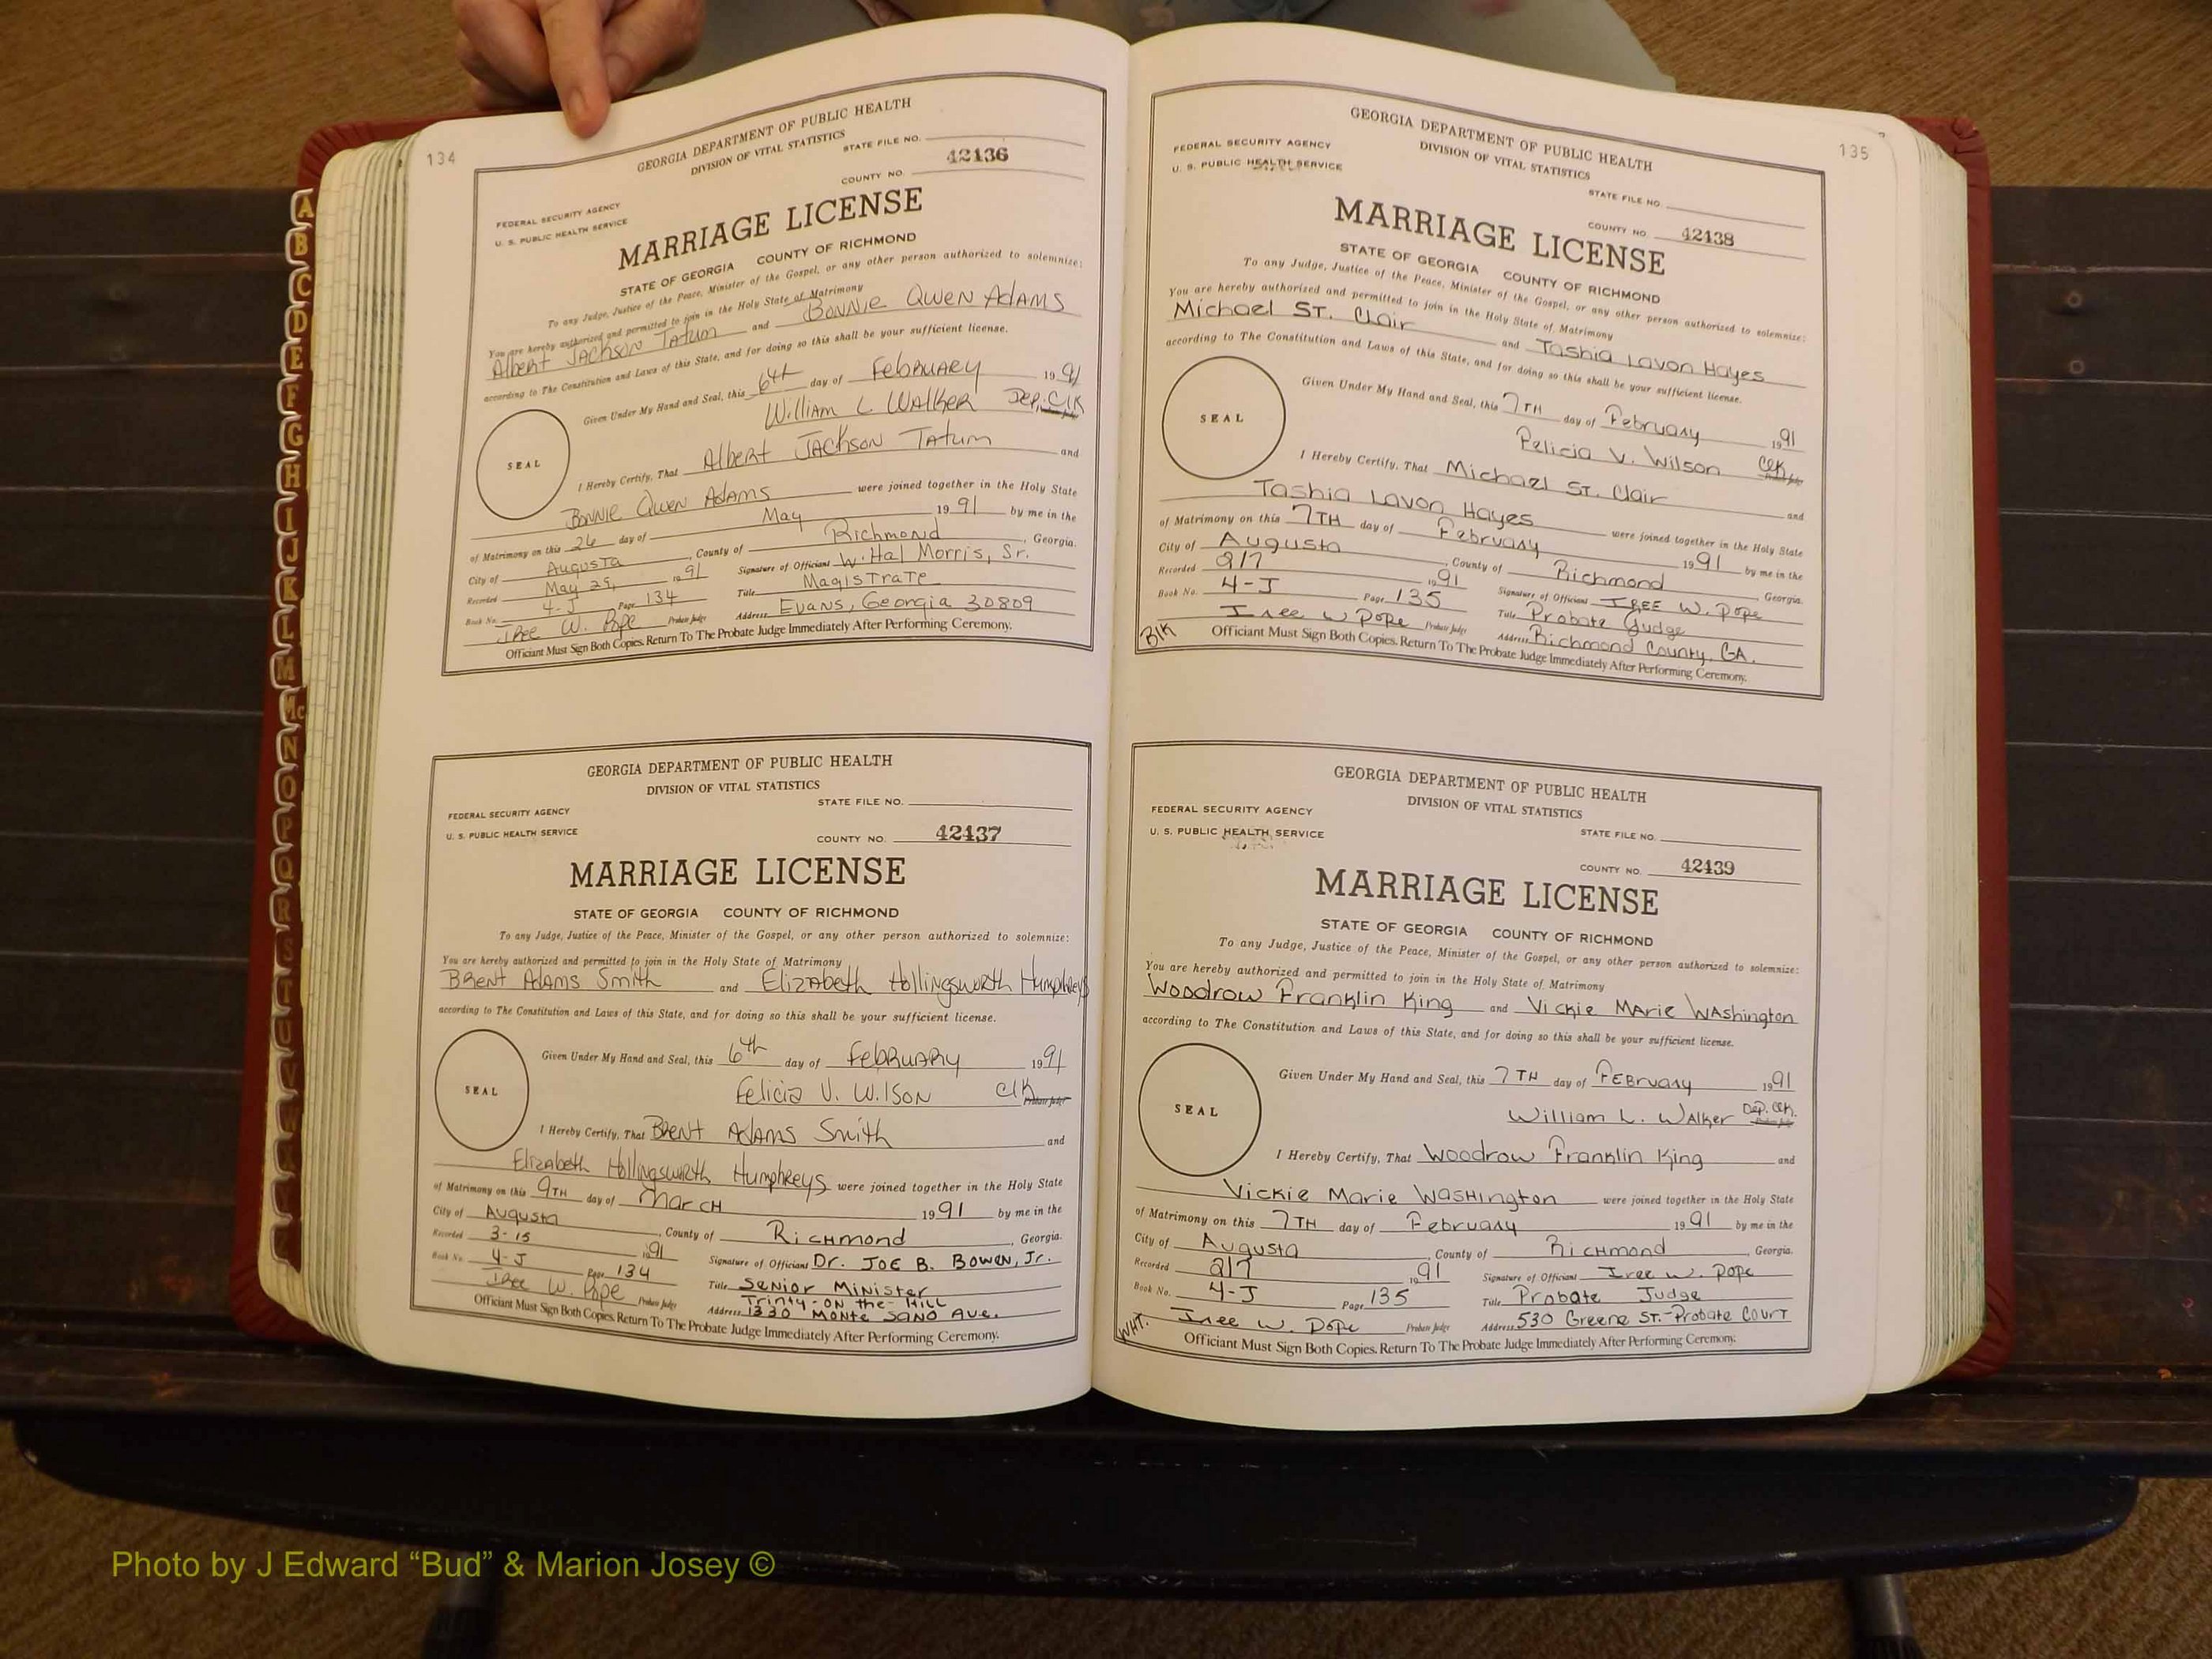 134
GEORGIA DEPARTMENT OF PUBLIC HEALTH
DIVISION OF VITAL STATISTICS
STATE FILE NO.
FEDERAL SECURITY AGENCY
U. S. PUBLIC HEALTH SERVICE
COUNTY NO. 42136
MARRIAGE LICENSE
STATE OF GEORGIA COUNTY OF RICHMOND
To any Judge, Justice of the Peace, Minister of the Gospel, or any other person authorized to solemnize:
You are hereby authorized and permitted to join in the Holy State of Matrimony
Albert Jackson Tatum and Bonnie Qwen Adams
according to The Constitution and Laws of this State, and for doing so this shall be your sufficient license.
Given Under My Hand and Seal, this 6th day of February 1991
William L Walker Dep. Clk
SEAL
I Hereby Certify, That Albert Jackson Tatum and
Bonnie Qwen Adams were joined together in the Holy State
of Matrimony on this 26 day of May 1991 by me in the
City of Augusta, County of Richmond, Georgia.
Recorded May 29, 1991 Signature of Officiant W. Hal Morris, Sr.
Book No. 4-J Page 134 Title Magistrate
Iree W. Pope Probate Judge Address Evans, Georgia 30809
Officiant Must Sign Both Copies. Return To The Probate Judge Immediately After Performing Ceremony.
GEORGIA DEPARTMENT OF PUBLIC HEALTH
DIVISION OF VITAL STATISTICS
STATE FILE NO.
FEDERAL SECURITY AGENCY
U. S. PUBLIC HEALTH SERVICE
COUNTY NO. 42137
MARRIAGE LICENSE
STATE OF GEORGIA COUNTY OF RICHMOND
To any Judge, Justice of the Peace, Minister of the Gospel, or any other person authorized to solemnize:
You are hereby authorized and permitted to join in the Holy State of Matrimony
Brent Adams Smith and Elizabeth Hollingsworth Humphreys
according to The Constitution and Laws of this State, and for doing so this shall be your sufficient license.
Given Under My Hand and Seal, this 6th day of February 1991
Felicia V. Wilson Clk Probate Judge
SEAL
I Hereby Certify, That Brent Adams Smith and
Elizabeth Hollingsworth Humphreys were joined together in the Holy State
of Matrimony on this 9TH day of March 1991 by me in the
City of Augusta, County of Richmond, Georgia.
Recorded 3-15 1991 Signature of Officiant Dr. Joe B. Bowen, Jr.
Book No. 4-J Page 134 Title Senior Minister
Trinty-on the-Hill
Iree W. Pope Probate Judge Address 1330 Monte Sano Ave.
Officiant Must Sign Both Copies. Return To The Probate Judge Immediately After Performing Ceremony.
135
GEORGIA DEPARTMENT OF PUBLIC HEALTH
DIVISION OF VITAL STATISTICS
FEDERAL SECURITY AGENCY
U. S. PUBLIC HEALTH SERVICE
STATE FILE NO.
COUNTY NO. 42138
MARRIAGE LICENSE
STATE OF GEORGIA COUNTY OF RICHMOND
To any Judge, Justice of the Peace, Minister of the Gospel, or any other person authorized to solemnize:
You are hereby authorized and permitted to join in the Holy State of Matrimony
Michael St. Clair and Tashia Lavon Hayes
according to The Constitution and Laws of this State, and for doing so this shall be your sufficient license.
Given Under My Hand and Seal, this 7TH day of February 1991
Felicia V. Wilson Clk.
SEAL
I Hereby Certify, That Michael St. Clair and
Tashia Lavon Hayes were joined together in the Holy State
of Matrimony on this 7TH day of February 1991 by me in the
City of Augusta, County of Richmond Georgia.
Recorded 2/7 1991 Signature of Officiant Iree W. Pope
Book No. 4-J Page 135 Title Probate Judge
Iree W Pope Probate Judge Address Richmond County, GA.
Blk
Officiant Must Sign Both Copies. Return To The Probate Judge Immediately After Performing Ceremony.
GEORGIA DEPARTMENT OF PUBLIC HEALTH
DIVISION OF VITAL STATISTICS
FEDERAL SECURITY AGENCY
U. S. PUBLIC HEALTH SERVICE
STATE FILE NO.
COUNTY NO. 42139
MARRIAGE LICENSE
STATE OF GEORGIA COUNTY OF RICHMOND
To any Judge, Justice of the Peace, Minister of the Gospel, or any other person authorized to solemnize:
You are hereby authorized and permitted to join in the Holy State of Matrimony
Woodrow Franklin King and Vickie Marie Washington
according to The Constitution and Laws of this State, and for doing so this shall be your sufficient license.
Given Under My Hand and Seal, this 7TH day of February 1991
William L. Walker Dep. Clk.
SEAL
I Hereby Certify, That Woodrow Franklin King and
Vickie Marie Washington were joined together in the Holy State
of Matrimony on this 7TH day of February 1991 by me in the
City of Augusta, County of Richmond, Georgia.
Recorded 2/7 1991 Signature of Officiant Iree W. Pope
Book No. 4-J Page 135 Title Probate Judge
Iree W. Pope Probate Judge Address 530 Greene St.-Probate Court
WHT.
Officiant Must Sign Both Copies. Return To The Probate Judge Immediately After Performing Ceremony.
A
B
C
D
E
F
G
H
I
J
K
L
M
Mc
N
O
P
Q
R
S
T
U
V
Photo by J Edward “Bud” & Marion Josey ©